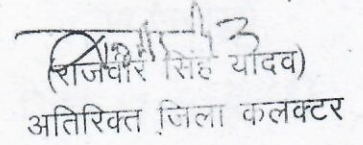 (राजवीर सिंह यादव)
अतिरिक्त जिला कलक्टर